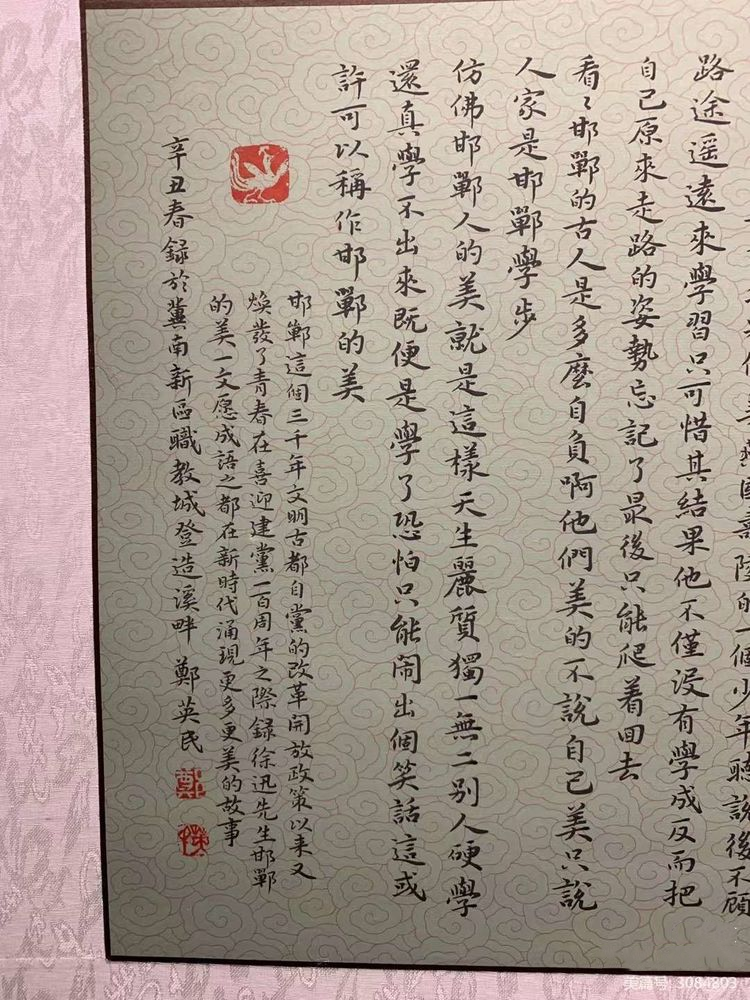 國壽陵的一個少年聽說後不顧
路途遥遠來學習只可惜其結果他不僅没有學成反而把
自己原來走路的姿勢忘記了最後只能爬着回去
看〻邯鄲的古人是多麽自負啊他們美的不說自己美只說
人家是邯鄲學步
仿佛邯鄲人的美就是這樣天生麗質獨一無二别人硬學
還真學不出來既便是學了恐怕只能闹出個笑話這或
許可以稱作邯鄲的美
邯鄲這個三千年文明古都自黨的改革開放政策以来又
焕發了青春在喜迎建黨一百周年之際録徐迅先生邯鄲
的美一文愿成語之都在新時代涌現更多更美的故事
辛丑春録於冀南新區職教城登造溪畔 鄭英民
鄭
美篇号 3084803